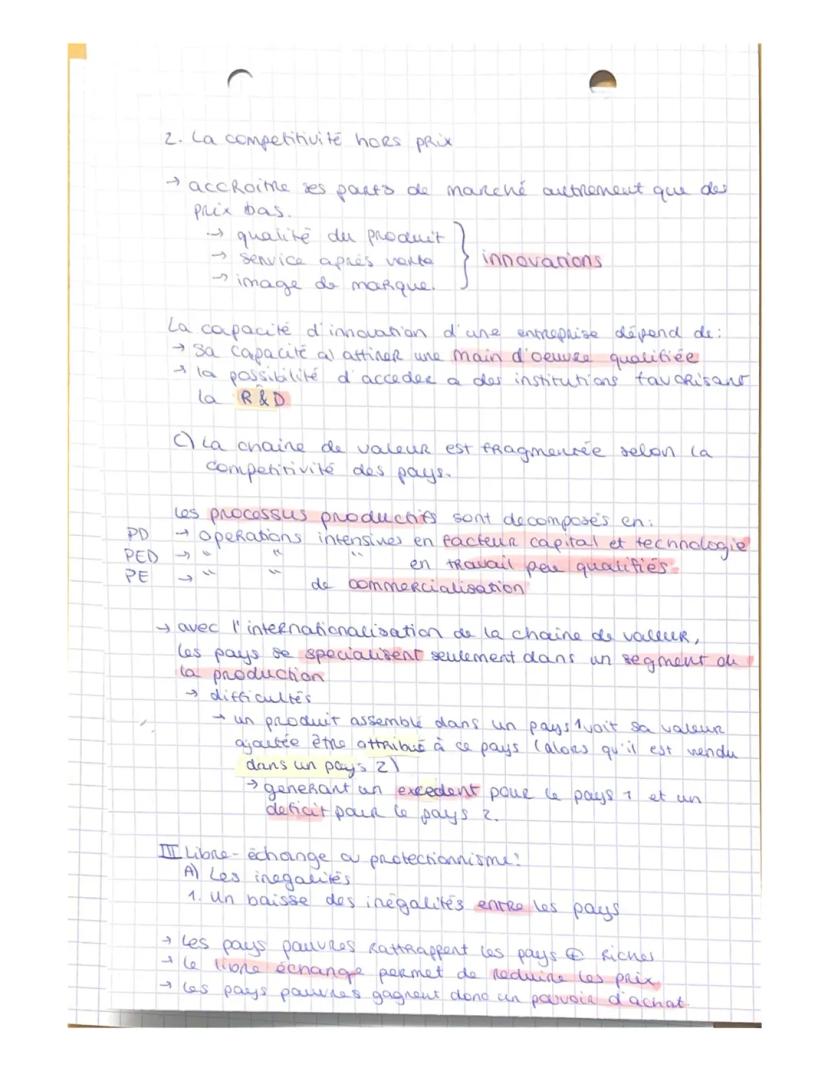 2. La competitivité hors prix
→ accroitre ses parts de marché autrement que des
prix bas.
→ qualité du produit
→ service après vente } innovations
→ image de marque.
La capacité d'innovation d'une entreprise dépend de:
→ sa capacité à attirer une main d'oeuvre qualifiée
→ la possibilité d'acceder a des institutions favorisant
la R&D
C) La chaine de valeur est fragmentée selon la
competitivité des pays.
Les processus productifs sont decomposés en:
PD → operations intensives en facteur capital et technologie
PED → " " " en travail peu qualifiés.
PE → " " de commercialisation
→ avec l'internationalisation de la chaine de valeur,
les pays se specialisent seulement dans un segment de
la production
→ difficultés
→ un produit assemblé dans un pays 1 voit sa valeur
ajoutée être attribué à ce pays (alors qu'il est vendu
dans un pays 2)
→ generant un excedent pour le pays 1 et un
deficit pour le pays 2.
III Libre-échange ou protectionnisme?
A) Les inegalités
1. Un baisse des inégalités entre les pays
→ Les pays pauvres rattrappent les pays ⊕ riches
→ Le libre échange permet de reduire les prix
→ Les pays pauvres gagnent donc un pouvoir d'achat.